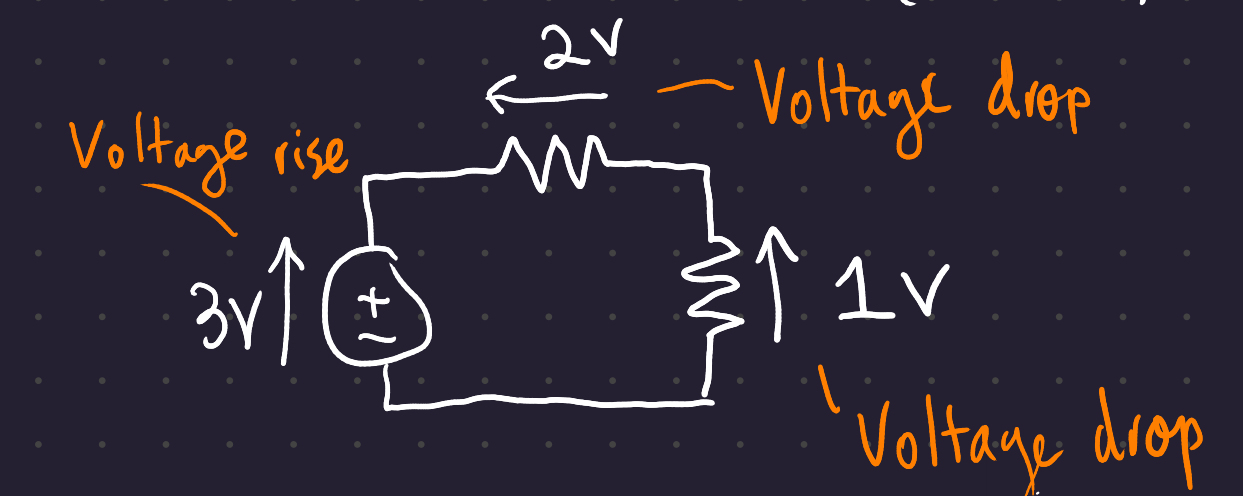 2V
Voltage drop
Voltage rise
3V
+
-
1V
Voltage drop